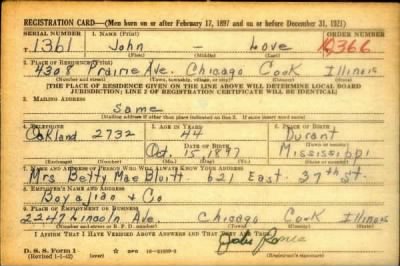 REGISTRATION CARD—(Men born on or after February 17, 1897 and on or before December 31, 1921)
SERIAL NUMBER 1. NAME (Print) ORDER NUMBER
T1361 John - Love 366
(First) (Middle) (Last)
2. PLACE OF RESIDENCE (Print)
4308 Prairie Ave. Chicago Cook Illinois
(Number and street) (Town, township, village, or city) (County) (State)
[THE PLACE OF RESIDENCE GIVEN ON THE LINE ABOVE WILL DETERMINE LOCAL BOARD
JURISDICTION; LINE 2 OF REGISTRATION CERTIFICATE WILL BE IDENTICAL]
3. MAILING ADDRESS
Same
[Mailing address if other than place indicated on line 2. If same insert word same]
4. TELEPHONE 5. AGE IN YEARS 6. PLACE OF BIRTH
Oakland 2732 44 Durant
DATE OF BIRTH (Town or county)
Oct. 15 1897 Mississippi
(Exchange) (Number) (Mo.) (Day) (Yr.) (State or country)
7. NAME AND ADDRESS OF PERSON WHO WILL ALWAYS KNOW YOUR ADDRESS
Mrs. Betty Mae 621 East 37th St.
8. EMPLOYER'S NAME AND ADDRESS
Boyajian + Co
9. PLACE OF EMPLOYMENT OR BUSINESS
2247 Lincoln Ave. Chicago Cook Illinois
(Number and street or R. F. D. number) (Town) (County) (State)
I AFFIRM THAT I HAVE VERIFIED ABOVE ANSWERS AND THAT THEY ARE TRUE.
D. S. S. Form 1
(Revised 1-1-42) (over)
John Love